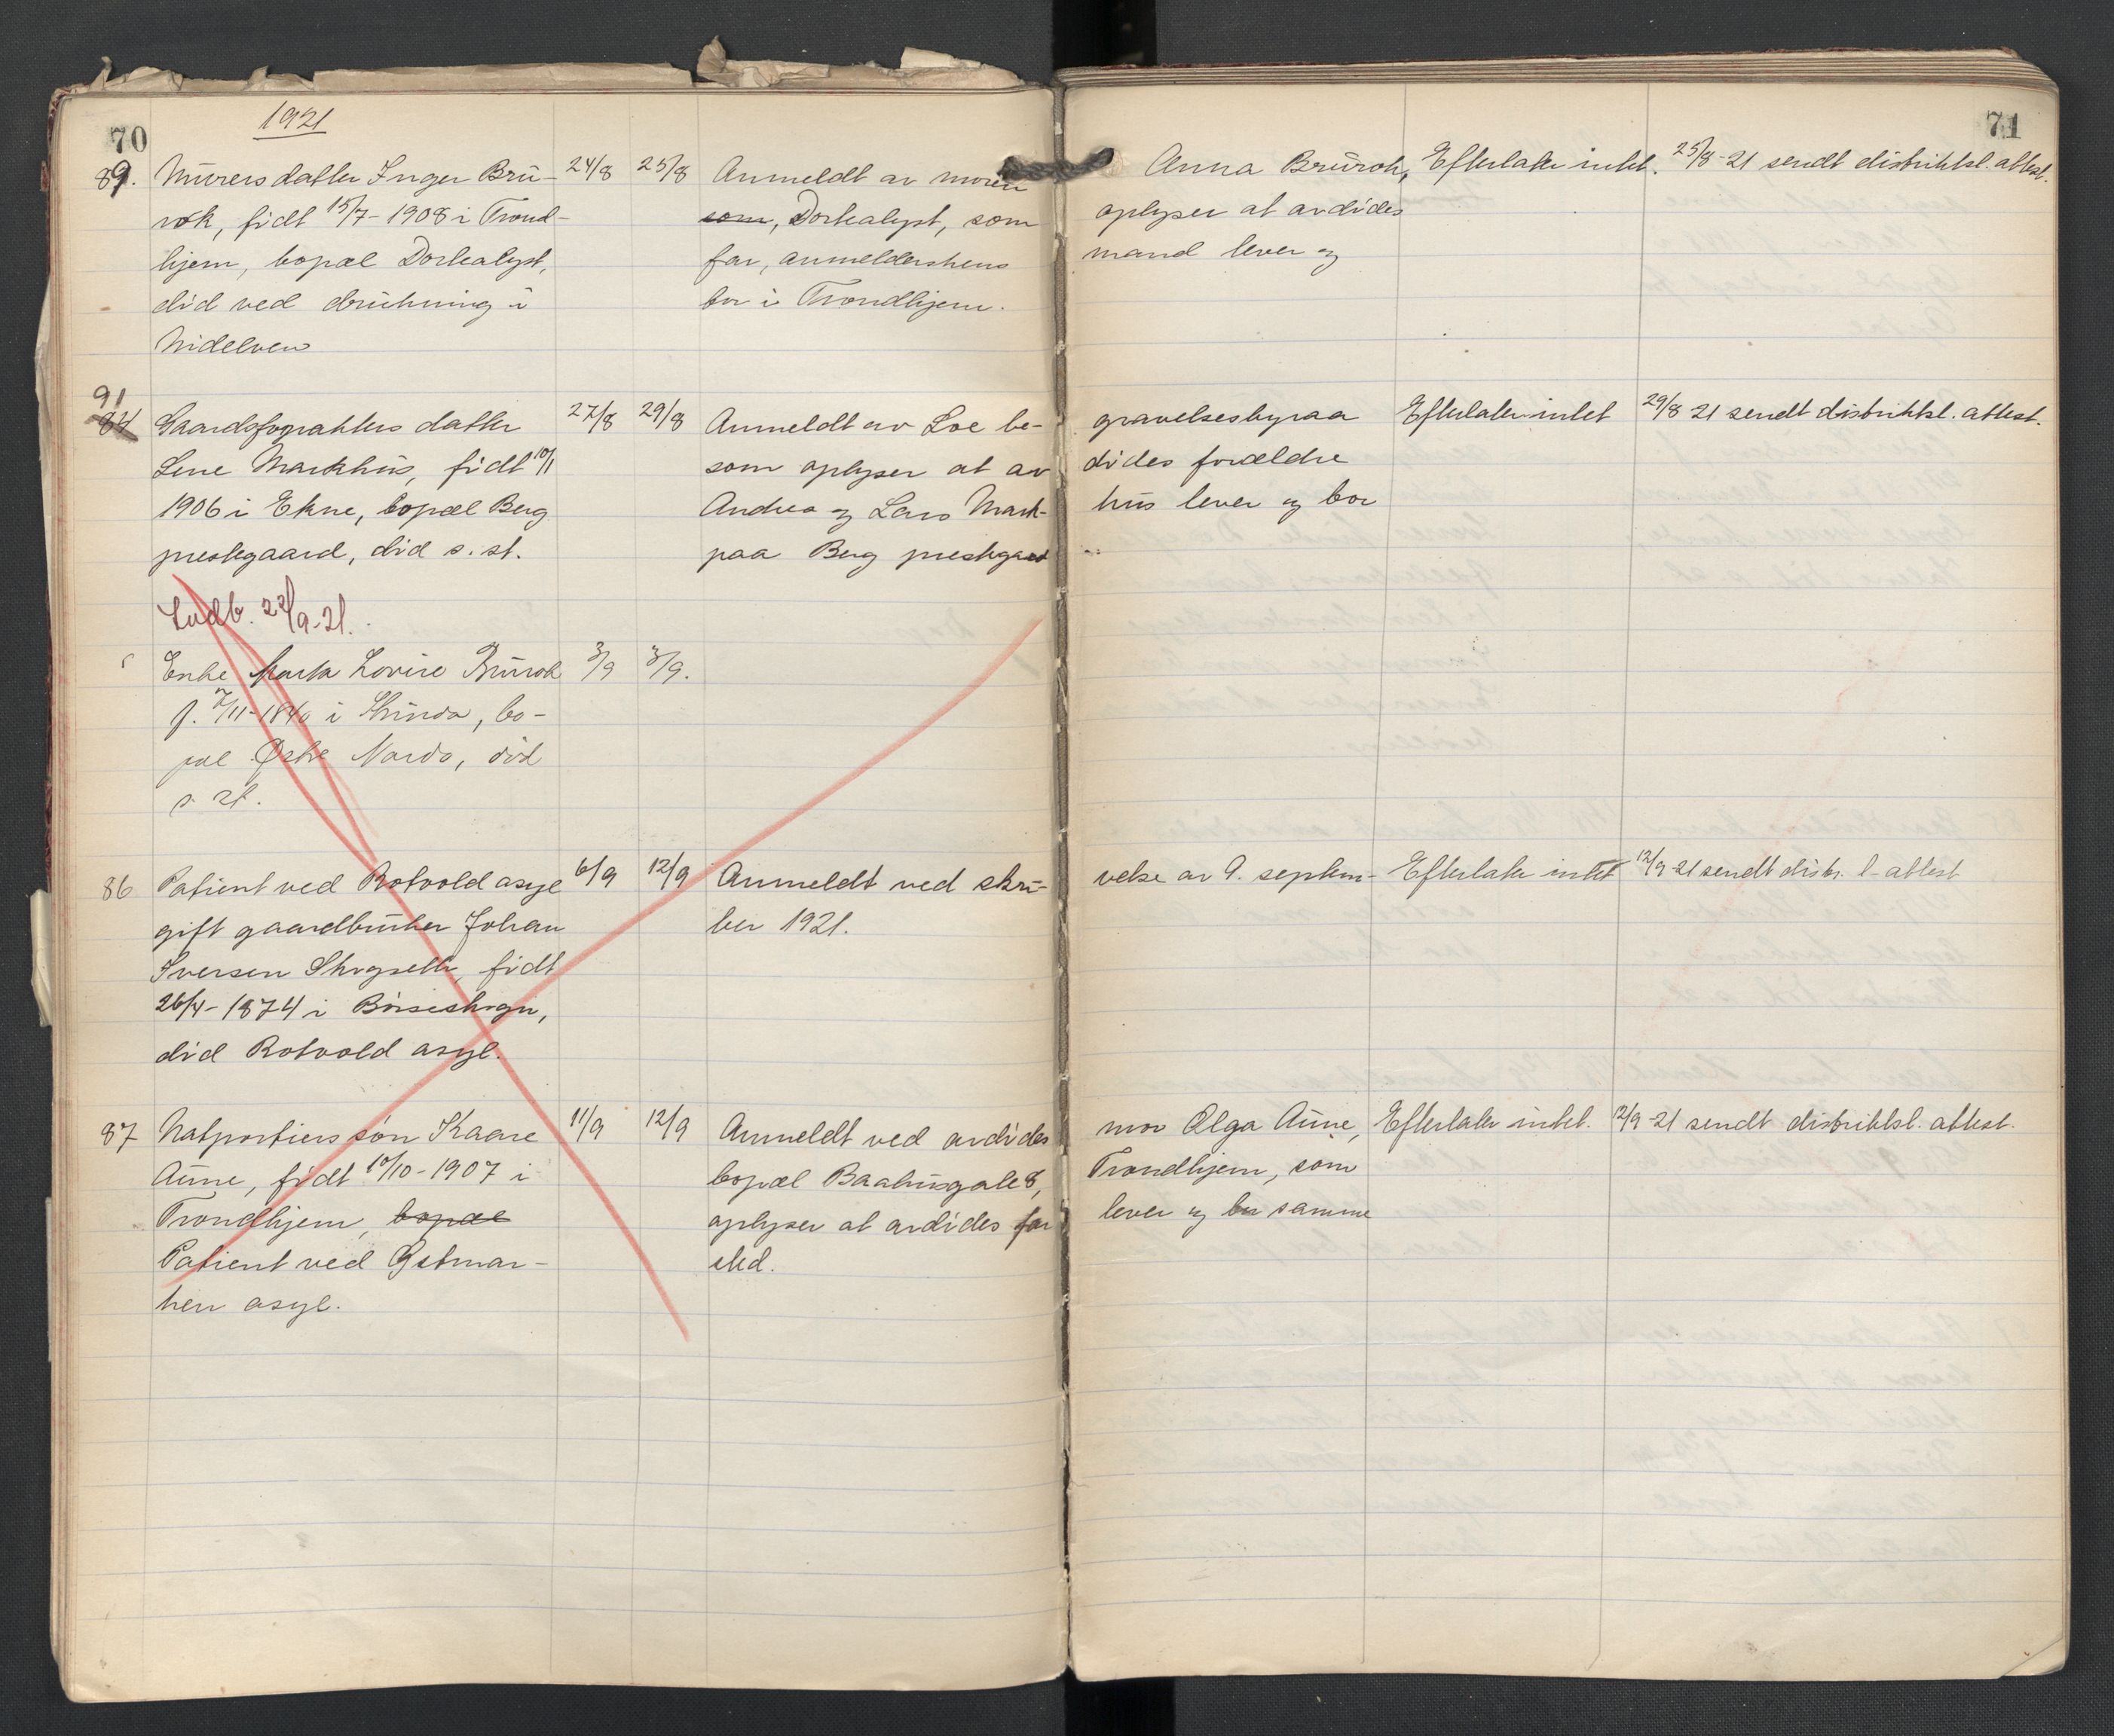 70
1921
89. Murers datter Inger Bru- 24/8 25/8 Anmeldt av moren Anna Brurok, Efterlater intet. 25/8-21 sendt distriktsl. attest.
rok, födt 15/7-1908 i Trond- som, Dorthealyst, som oplyser at avdödes
hjem, bopæl Dorthealyst, far, anmelderskens mand lever og
död ved drukning i bor i Trondhjem.
Nidelven
91
84 Gaardsforpakters datter 27/8 29/8 Anmeldt av Loe be- gravelsesbyraa Efterlater intet 29/8 21 sendt distriktsl. attest.
Lene Markhus, födt 10/1 som oplyser at av dödes forældre
1906 i Ekne, bopæl Berg Andrea og Lars Mark- hus lever og bor
prestegaard, död s. st. paa Berg prestegaard
Indb. 22/9-21.
Enke Marta Lovise Brurok 3/9 3/9.
f. 7/11-1840 i Strinda, bo-
pæl Østre Nardo, död
s. st.
86 Patient ved Rotvold asyl 6/9 12/9 Anmeldt ved skri- velse av 9. septem- Efterlater intet 12/9-21 sendt distr. l-attest
gift gaardbruker Johan ber 1921.
Iversen Skogseth, födt
26/4-1874 i Börseskogn,
död Rotvold asyl.
87 Natportiers sön Kaare 11/9 12/9 Anmeldt ved avdödes mor Olga Aune, Efterlater intet. 12/9-21 sendt distriktsl. attest.
Aune, födt 10/10-1907 i bopæl Baahusgate 8, Trondhjem, som
Trondhjem, bopæl oplyser at avdödes far lever og bor samme
Patient ved Østmar- sted.
ken asyl.
71